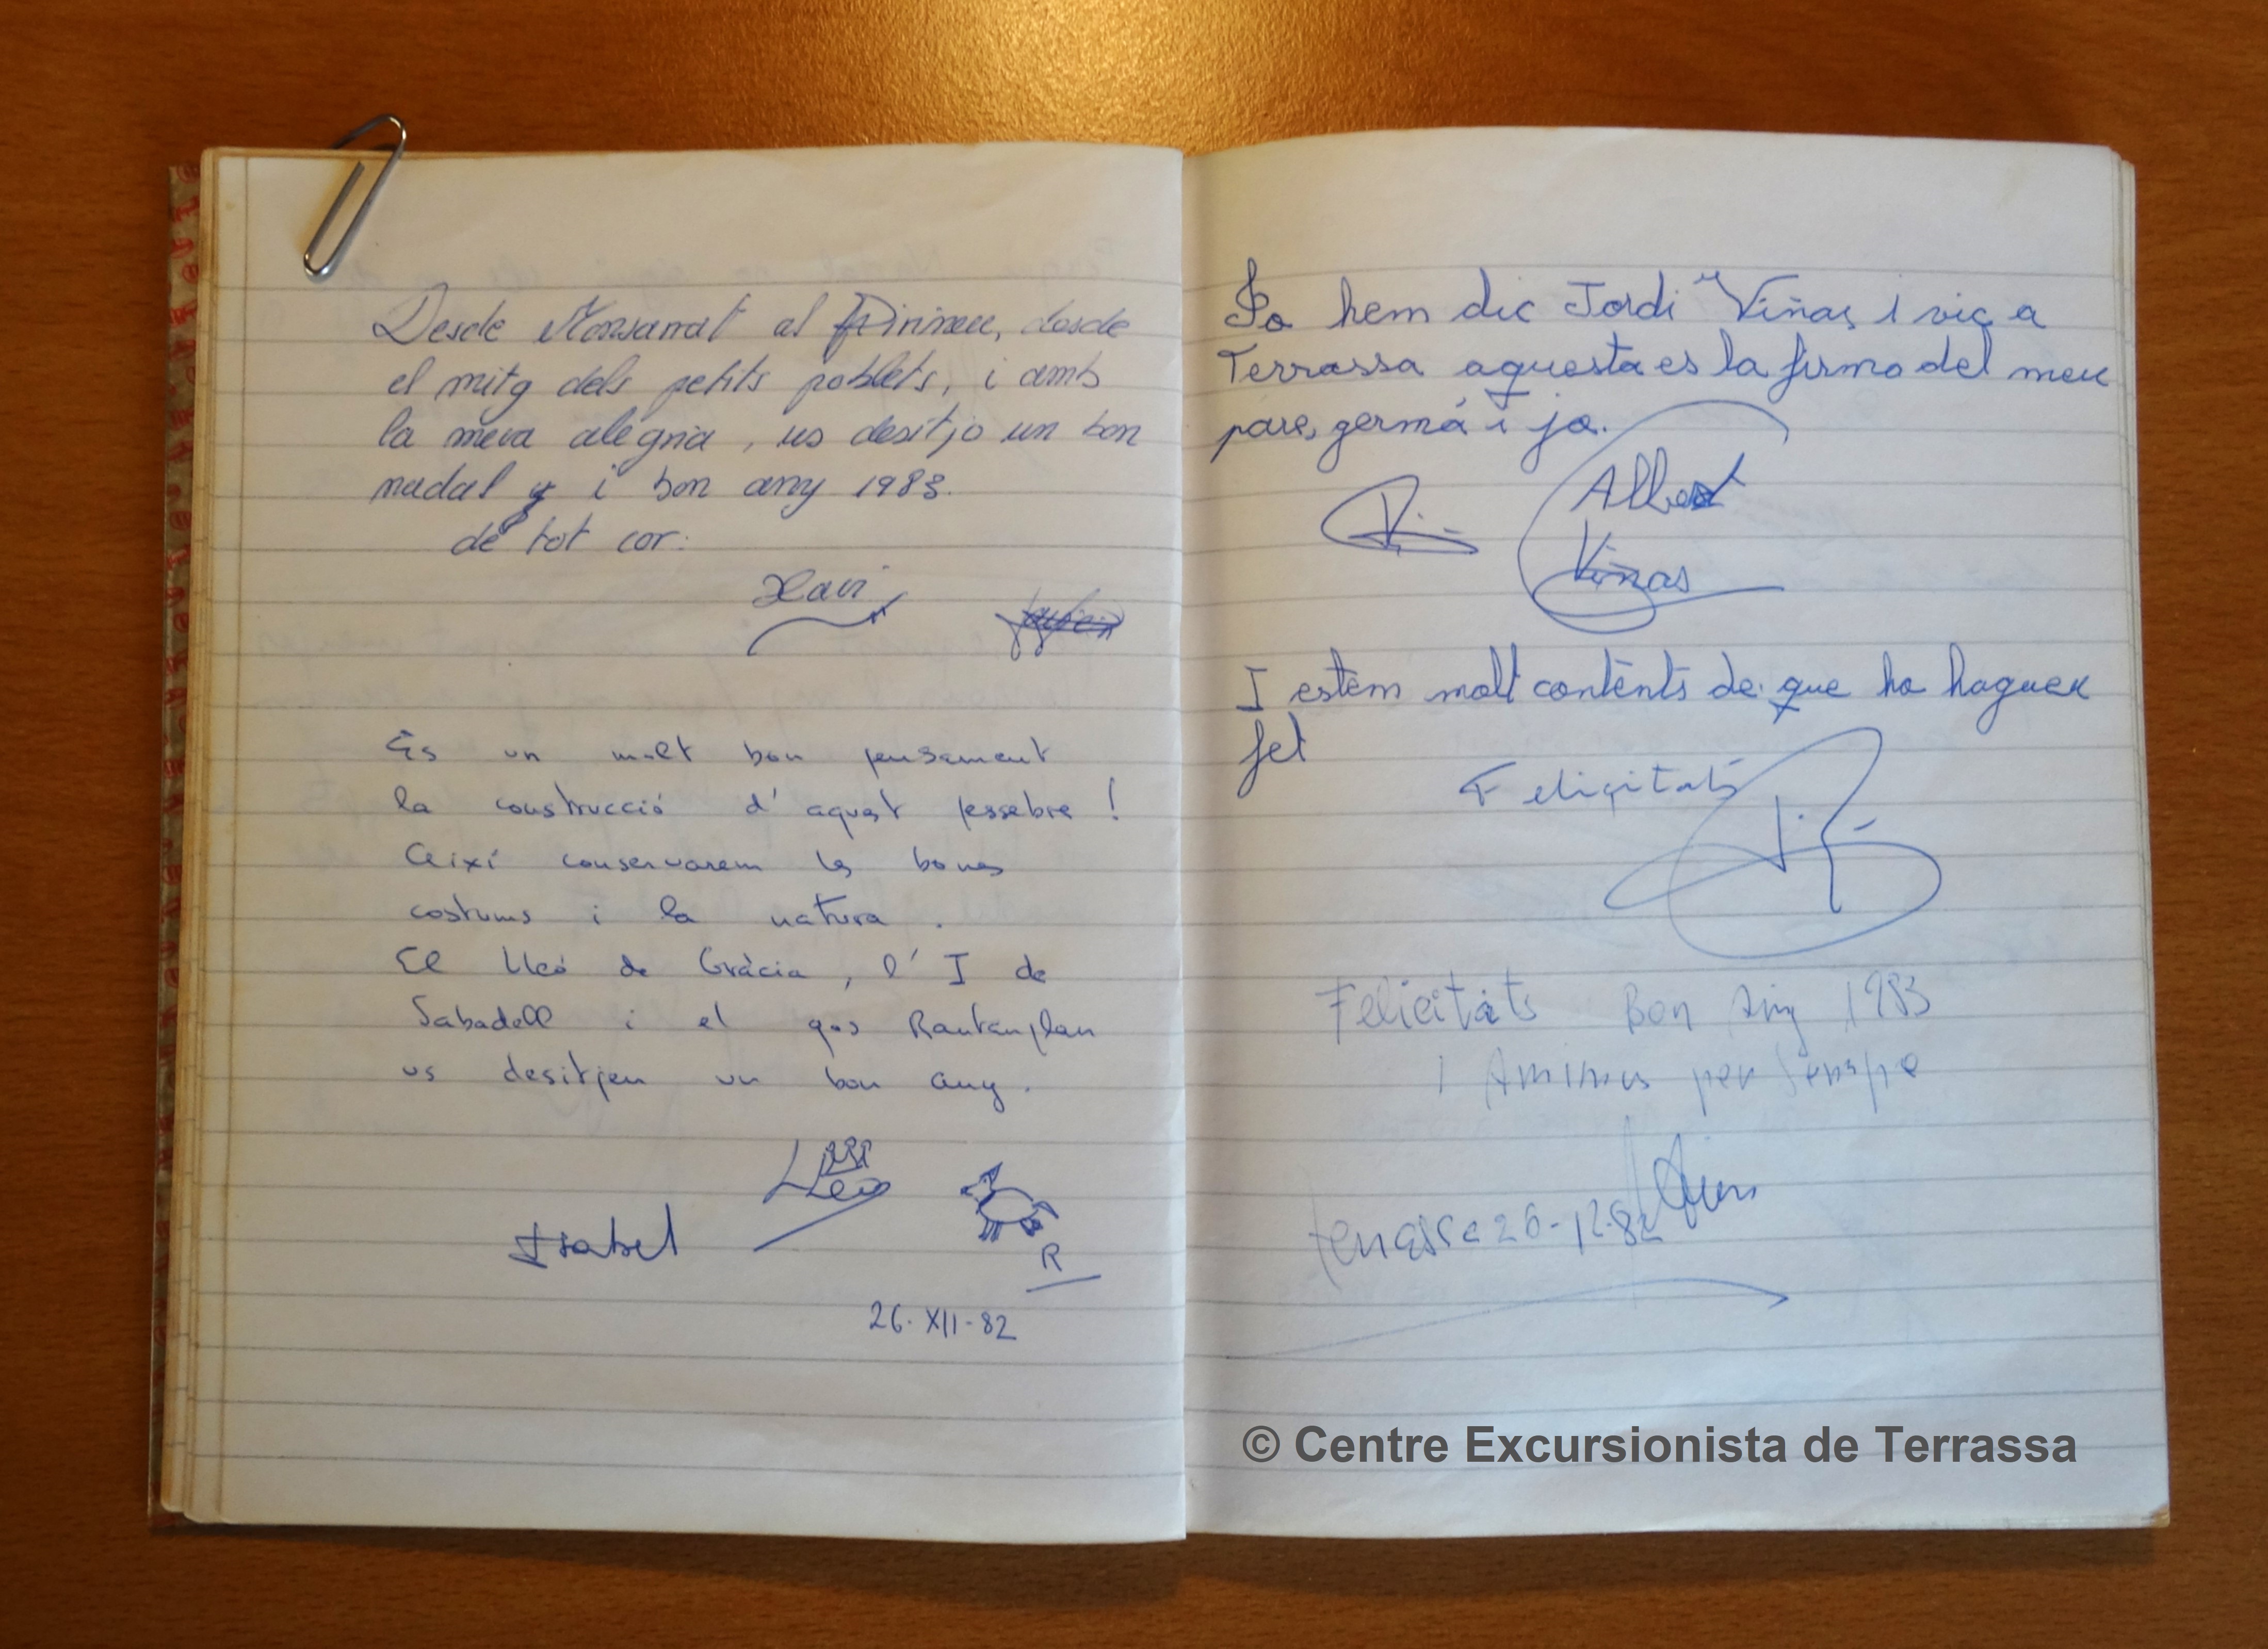 Desde Monsarrat al Pirineu, desde
el mitg dels petits poblets, i amb
la meva alegria, us desitjo un bon
nadal y i bon any 1983.
de tot cor:
Xavi
És un molt bon pensament
la construcció d'aquest pessebre!
Així conservarem les bones
costums i la natura.
El Lleó de Gràcia, l'I de
Sabadell i el gos Rantanplan
us desitjen un bon any.
Lleó
Isabel
R
26-XII-82
Jo hem dic Jordi Viñas i vic a
Terrassa aquesta es la firma del meu
pare, germá i jo.
Albert
Viñas
I estem molt contènts de que ho hagueu
fet
Feliçitats
Felicitats Bon Any 1983
i Animus per Sempre
Terrassa 26-12-82
© Centre Excursionista de Terrassa